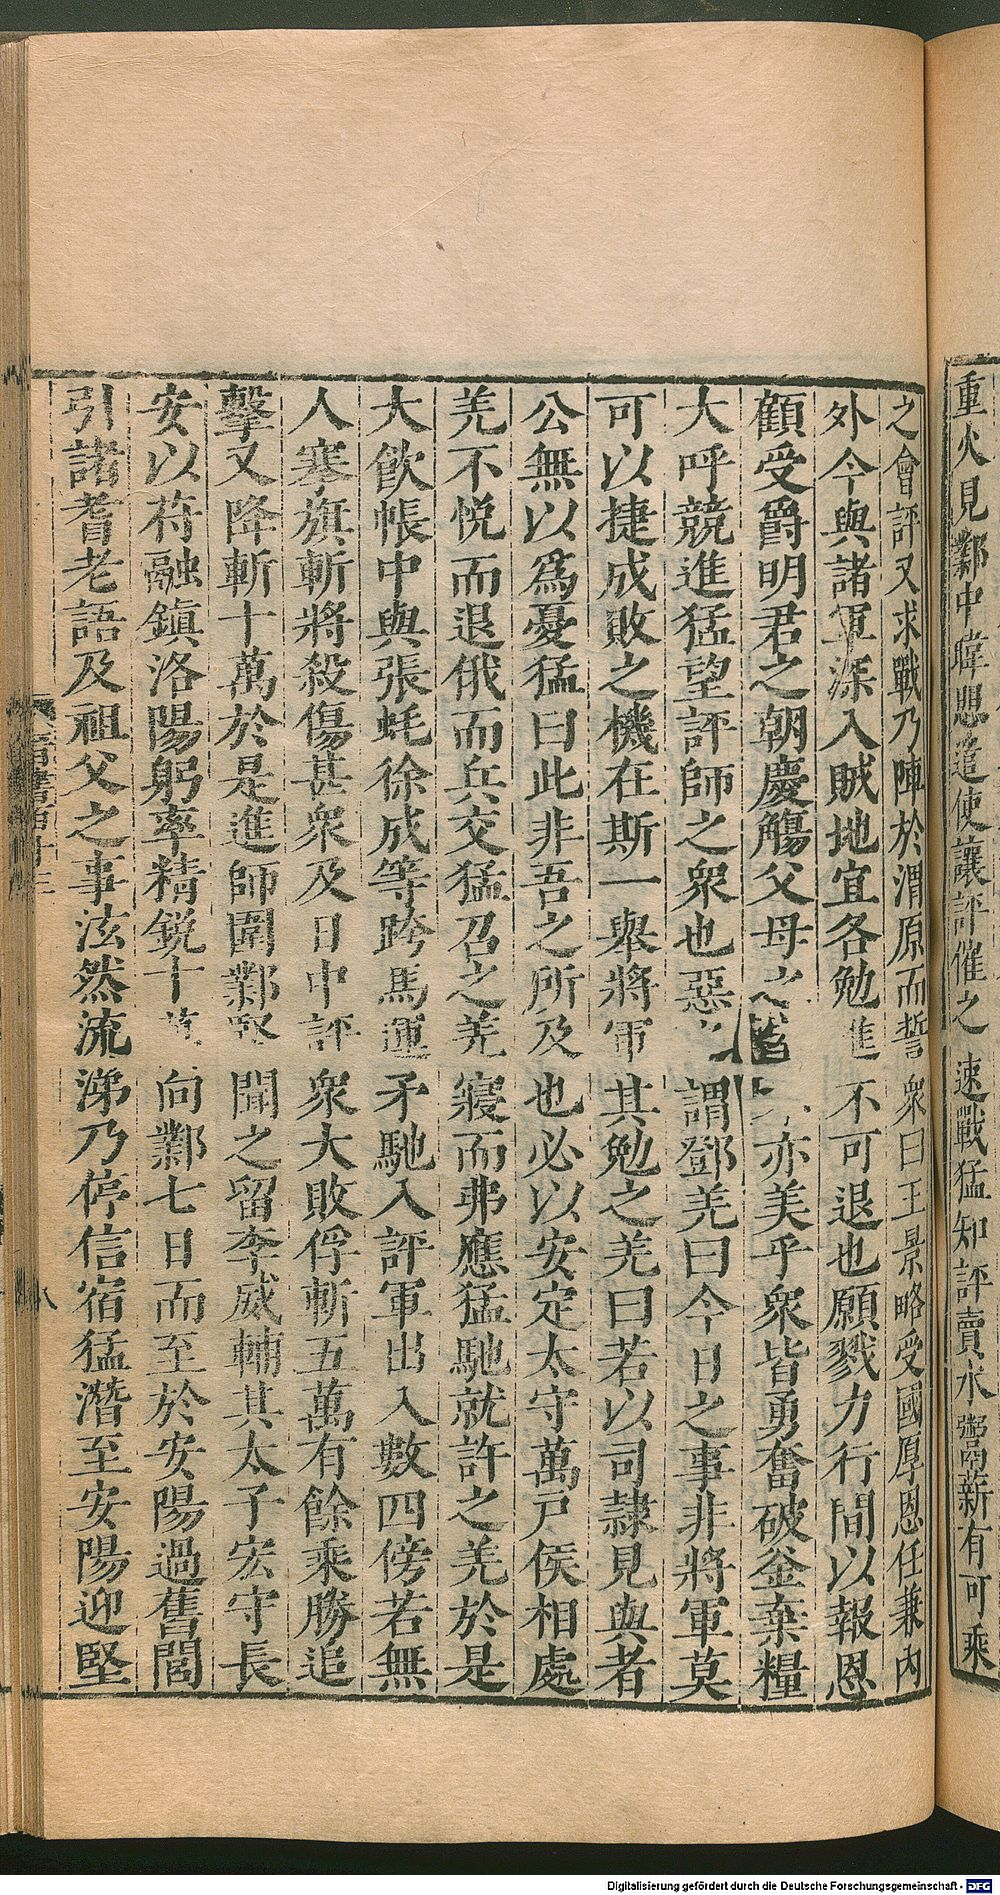 重火見鄴中暐懇遣使讓評催之速戰猛知評賣水鬻薪有可乘
之會評又求戰乃陣於渭原而誓衆曰王景略受國厚恩任兼內
外今與諸軍深入賊地宜各勉進不可退也願戮力行間以報恩
顧受爵明君之朝慶觴父母之亦美乎衆皆勇奮破釜棄糧
大呼競進猛望評師之衆也惡謂鄧羌曰今日之事非將軍莫
可以捷成敗之機在斯一舉將軍其勉之羌曰若以司隸見與者
公無以爲憂猛曰此非吾之所及也必以安定太守萬戶侯相處
羌不悅而退俄而兵交猛召之羌寢而弗應猛馳就許之羌於是
大飲帳中與張蚝徐成等跨馬運矛馳入評軍出入數四傍若無
人搴旗斬將殺傷甚衆及日中評衆大敗俘斬五萬有餘乘勝追
擊又降斬十萬於是進師圍鄴堅聞之留李威輔其太子宏守長
安以苻融鎮洛陽躬率精銳十萬向鄴七日而至於安陽過舊閭
引諸耆老語及祖父之事泫然流涕乃停信宿猛潛至安陽迎堅
八
Digitalisierung gefördert durch die Deutsche Forschungsgemeinschaft - DFG